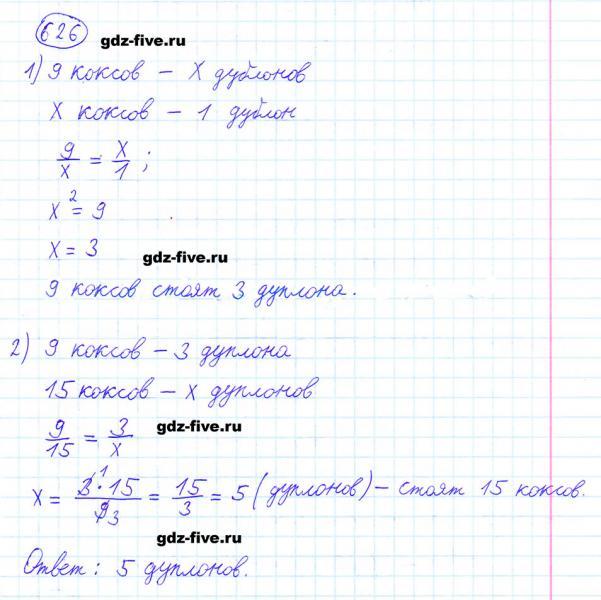 626 gdz-five.ru
1) 9 коксов – х дублонов
х коксов – 1 дублон
9/х = х/1 ;
х² = 9
х = 3 gdz-five.ru
9 коксов стоят 3 дуплона.
2) 9 коксов – 3 дуплона
15 коксов – х дуплонов
9/15 = 3/х gdz-five.ru
х = 3¹·15/9₃ = 15/3 = 5 (дуплонов) – стоят 15 коксов.
gdz-five.ru
Ответ: 5 дуплонов.